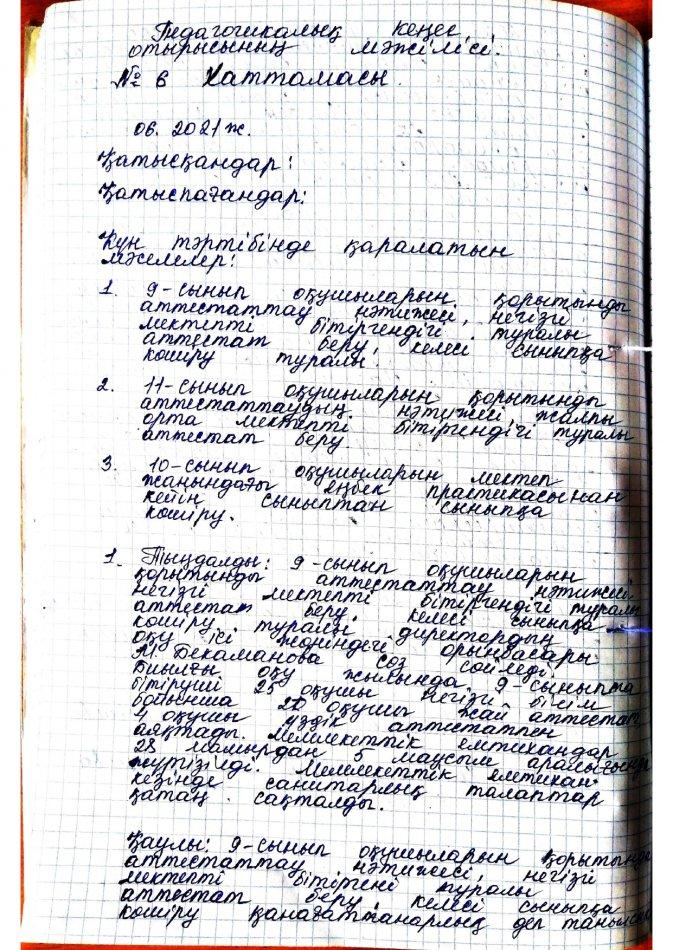 Педагогикалық кеңес
отырысының мәжілісі.
№ 6 Хаттамасы.
06. 2021 ж.
Қатысқандар:
Қатыспағандар:
Күн тәртібінде қаралатын
мәселелер:
1. 9-сынып оқушыларын қорытынды
аттестаттау нәтижесі, негізгі
мектепті бітіргендігі туралы
аттестат беру, келесі сыныпқа
көшіру туралы.
2. 11-сынып оқушыларын қорытынды
аттестаттаудың нәтижесі жалпы
орта мектепті бітіргендігі туралы
аттестат беру
3. 10-сынып оқушыларын мектеп
жанындағы еңбек практикасынан
кейін сыныптан сыныпқа
көшіру.
1. Тыңдалды: 9-сынып оқушыларын
қорытынды аттестаттау нәтижесі
негізгі мектепті бітіргендігі туралы
аттестат беру, келесі сыныпқа
көшіру туралы директордың
оқу ісі жөніндегі орынбасары
М. Бекаманова сөз сөйледі.
Биылғы оқу жылында 9-сыныпта
бітіруші 25 оқушы негізгі білім
бойынша 20 оқушы жай аттестат
4 оқушы үздік аттестатпен
аяқтады. Мемлекеттік емтихандар
28 мамырдан 5 маусым аралығында
жүргізілді. Мемлекеттік емтихан
кезінде санитарлық талаптар
қатаң сақталды.
Қаулы: 9-сынып оқушыларын қорытынды
аттестаттау нәтижесі, негізгі
мектепті бітіргені туралы
аттестат беру, келесі сыныпқа
көшіру қанағаттанарлық деп танылсын